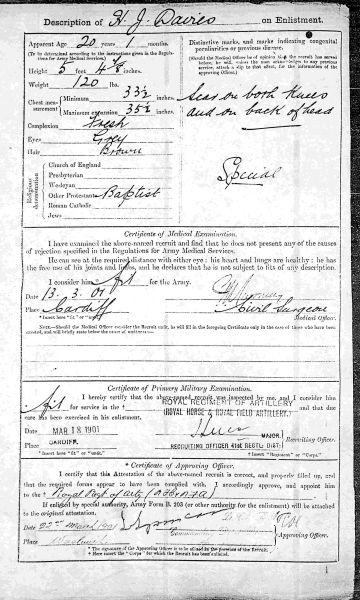 Description of H. J. Davies on Enlistment.
Apparent Age 20 years 1 months.
(To be determined according to the instructions given in the Regulations for Army Medical Services.)
Height 5 feet 4
Weight 120 lbs.
Chest measurement
Minimum 33½
Maximum expansion 35½
Complexion Fresh
Eyes Grey
Hair Brown
Religious denomination
Church of England
Presbyterian
Wesleyan
Other Protestants Baptist
Roman Catholic
Jews
Distinctive marks, and marks indicating congenital peculiarities or previous disease.
(Should the Medical Officer be of opinion that the recruit has served before, he will, unless the man acknowledges to any previous service, attach a slip to that effect, for the information of the approving Officer).
Scar on both Knees
and on back of head
Special
Certificate of Medical Examination.
I have examined the above-named recruit and find that he does not present any of the causes
of rejection specified in the Regulations for Army Medical Services.
He can see at the required distance with either eye: his heart and lungs are healthy: he has
the free use of his joints and limbs, and he declares that he is not subject to fits of any description.
I consider him fit for the Army.
Date 13. 3. 01
Place Cardiff
Civil Surgeon
Medical Officer.
*Insert here "fit" or "unfit."
NOTE.—Should the Medical Officer consider the Recruit unfit, he will fill in the foregoing Certificate only in the case of those who have been
attested, and will briefly state below the cause of unfitness:—
Certificate of Primary Military Examination.
I hereby certify that the above-named recruit was inspected by me, and I consider him
fit for service in the † ROYAL REGIMENT OF ARTILLERY
(ROYAL HORSE & ROYAL FIELD ARTILLERY.) and that due
care has been exercised in his enlistment.
Date MAR 13 1901
Place CARDIFF.
MAJOR,
RECRUITING OFFICER 41ST REGTL: DIST:
Recruiting Officer.
*Insert here "fit" or "unfit."
†Insert "Regiment" or "Corps."
*Certificate of Approving Officer.
I certify that this Attestation of the above-named recruit is correct, and properly filled up, and
that the required forms appear to have been complied with. I accordingly approve, and appoint him
to the †Royal Regt of Arty
If enlisted by special authority, Army Form B. 203 (or other authority for the enlistment) will be attached to
the original attestation.
Date 22nd March 1901
Place Woolwich
Col
Approving Officer.
*The signature of the Approving Officer is to be affixed in the presence of the Recruit.
†Here insert the "Corps" for which the Recruit has been enlisted.